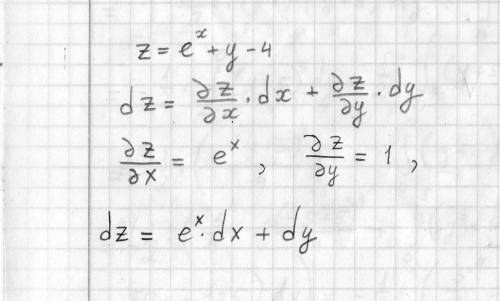 z = eˣ + y - 4
dz = ∂z/∂x · dx + ∂z/∂y · dy
∂z/∂x = eˣ, ∂z/∂y = 1,
dz = eˣ · dx + dy